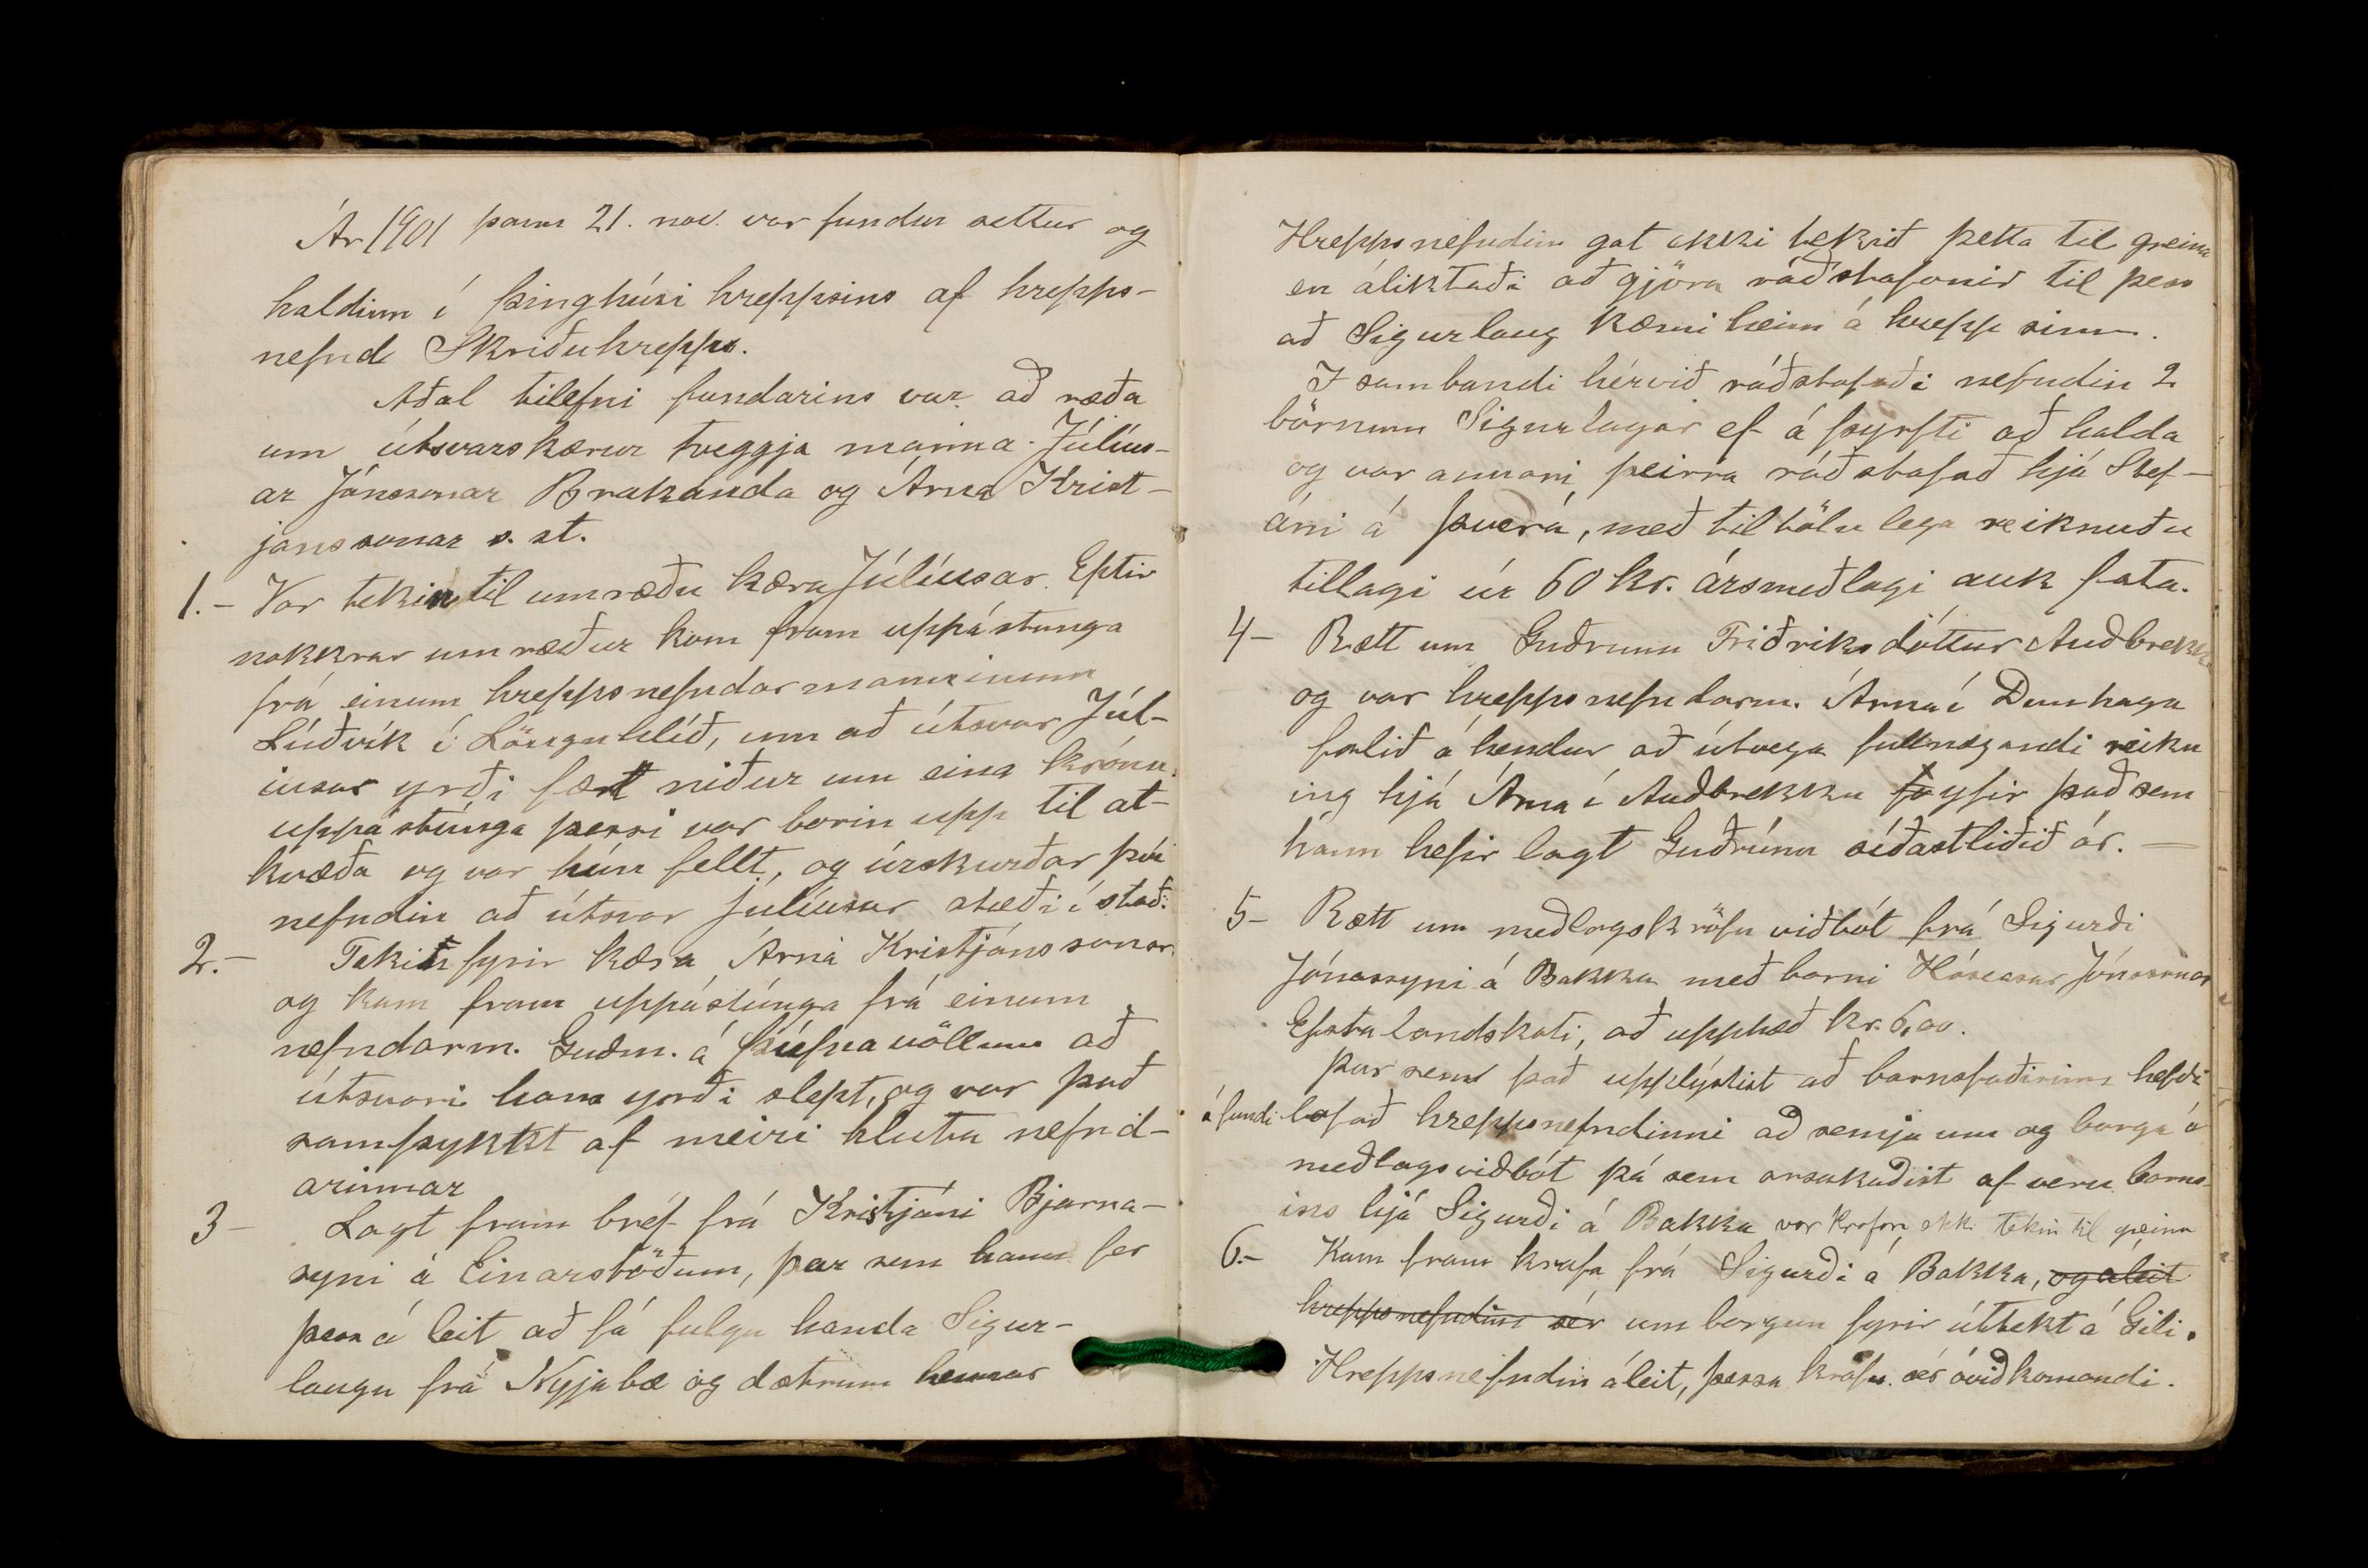 Ár 1901 þann 21. nov. var fundur settur og
haldinn í þinghúsi hreppsins af hrepps-
nefnd Skriðuhrepps.
Aðal tilefni fundarins var að ræða
um útsvarskærur tveggja manna. Júlíus-
ar Jónssonar Brakanda og Árna Krist-
janssonar s. st.
1. - Var tekin til umræðu kæra Júlíusar. Eptir
nokkrar umræður kom fram uppástunga
frá einum hreppsnefndarmanninum
Lúðvík í Lönguhlíð, um að útsvar Júl-
iusar yrði fært niður um eina krónu.
uppástúnga þessi var borin upp til at-
kvæða og var hún fellt, og úrskurðar því
nefndin að útsvar Júlíusar stæði í stað.
2. - Tekin fyrir kæra Árna Kristjánssonar
og kom fram uppástúnga frá einum
nefndarm. Guðm. á Þúfnavöllum að
útsvari hans yrði slept, og var það
samþykkt af meiri hluta nefnd-
arinnar
3 - Lagt fram bréf frá Kristjáni Bjarna-
syni á Einarsstöðum, þar sem hann fer
þess á leit að fá fulgu handa Sigur-
laugu frá Nyjabæ og dætrum hennar
Hreppsnefndin gat ekki tekið þetta til greina
en áliktaði að gjöra ráðstafanir til þess
að Sigurlaug kæmi heim á hrepp sinn.
I sambandi hérvið ráðstafaði nefndin 2
börnum Sigurlagar ef á þyrfti að halda
og var annari þeirra ráðstafað hjá Stef-
áni á Þverá, með tiltölulega reiknuðu
tillagi úr 60 kr. ársmeðlagi auk fata.
4 - Rætt um Guðrunu Friðriksdóttur Auðbrekku
og var hreppsnefndarm. Árna í Dunhaga
falið á hendur að útvega fullnægandi reikn
ing hjá Árna í Auðbrekku yfir það sem
hann hefir lagt Guðrúnu síðastliðið ár. -
5 - Rætt um meðlagskröfu viðbót frá Sigurði
Jónassyni á Bakka með barni Hóseasar Jónssonar
Efstalandskoti, að upphæð kr. 6,00.
Þar sem það upplýstist að barnsfaðirinn hefði
á fundi lofað hreppsnefndinni að semja um og borga á
meðlagsviðbót þá sem orsakaðist af veru barns-
ins hjá Sigurði á Bakka var krafan ekki tekin til greina
6. - Kom fram krafa frá Sigurði á Bakka, og áleit
hreppsnefndin sér um borgun fyrir úttekt á Gili.
Hreppsnefndin áleit, þessa kröfu sér óviðkomandi.